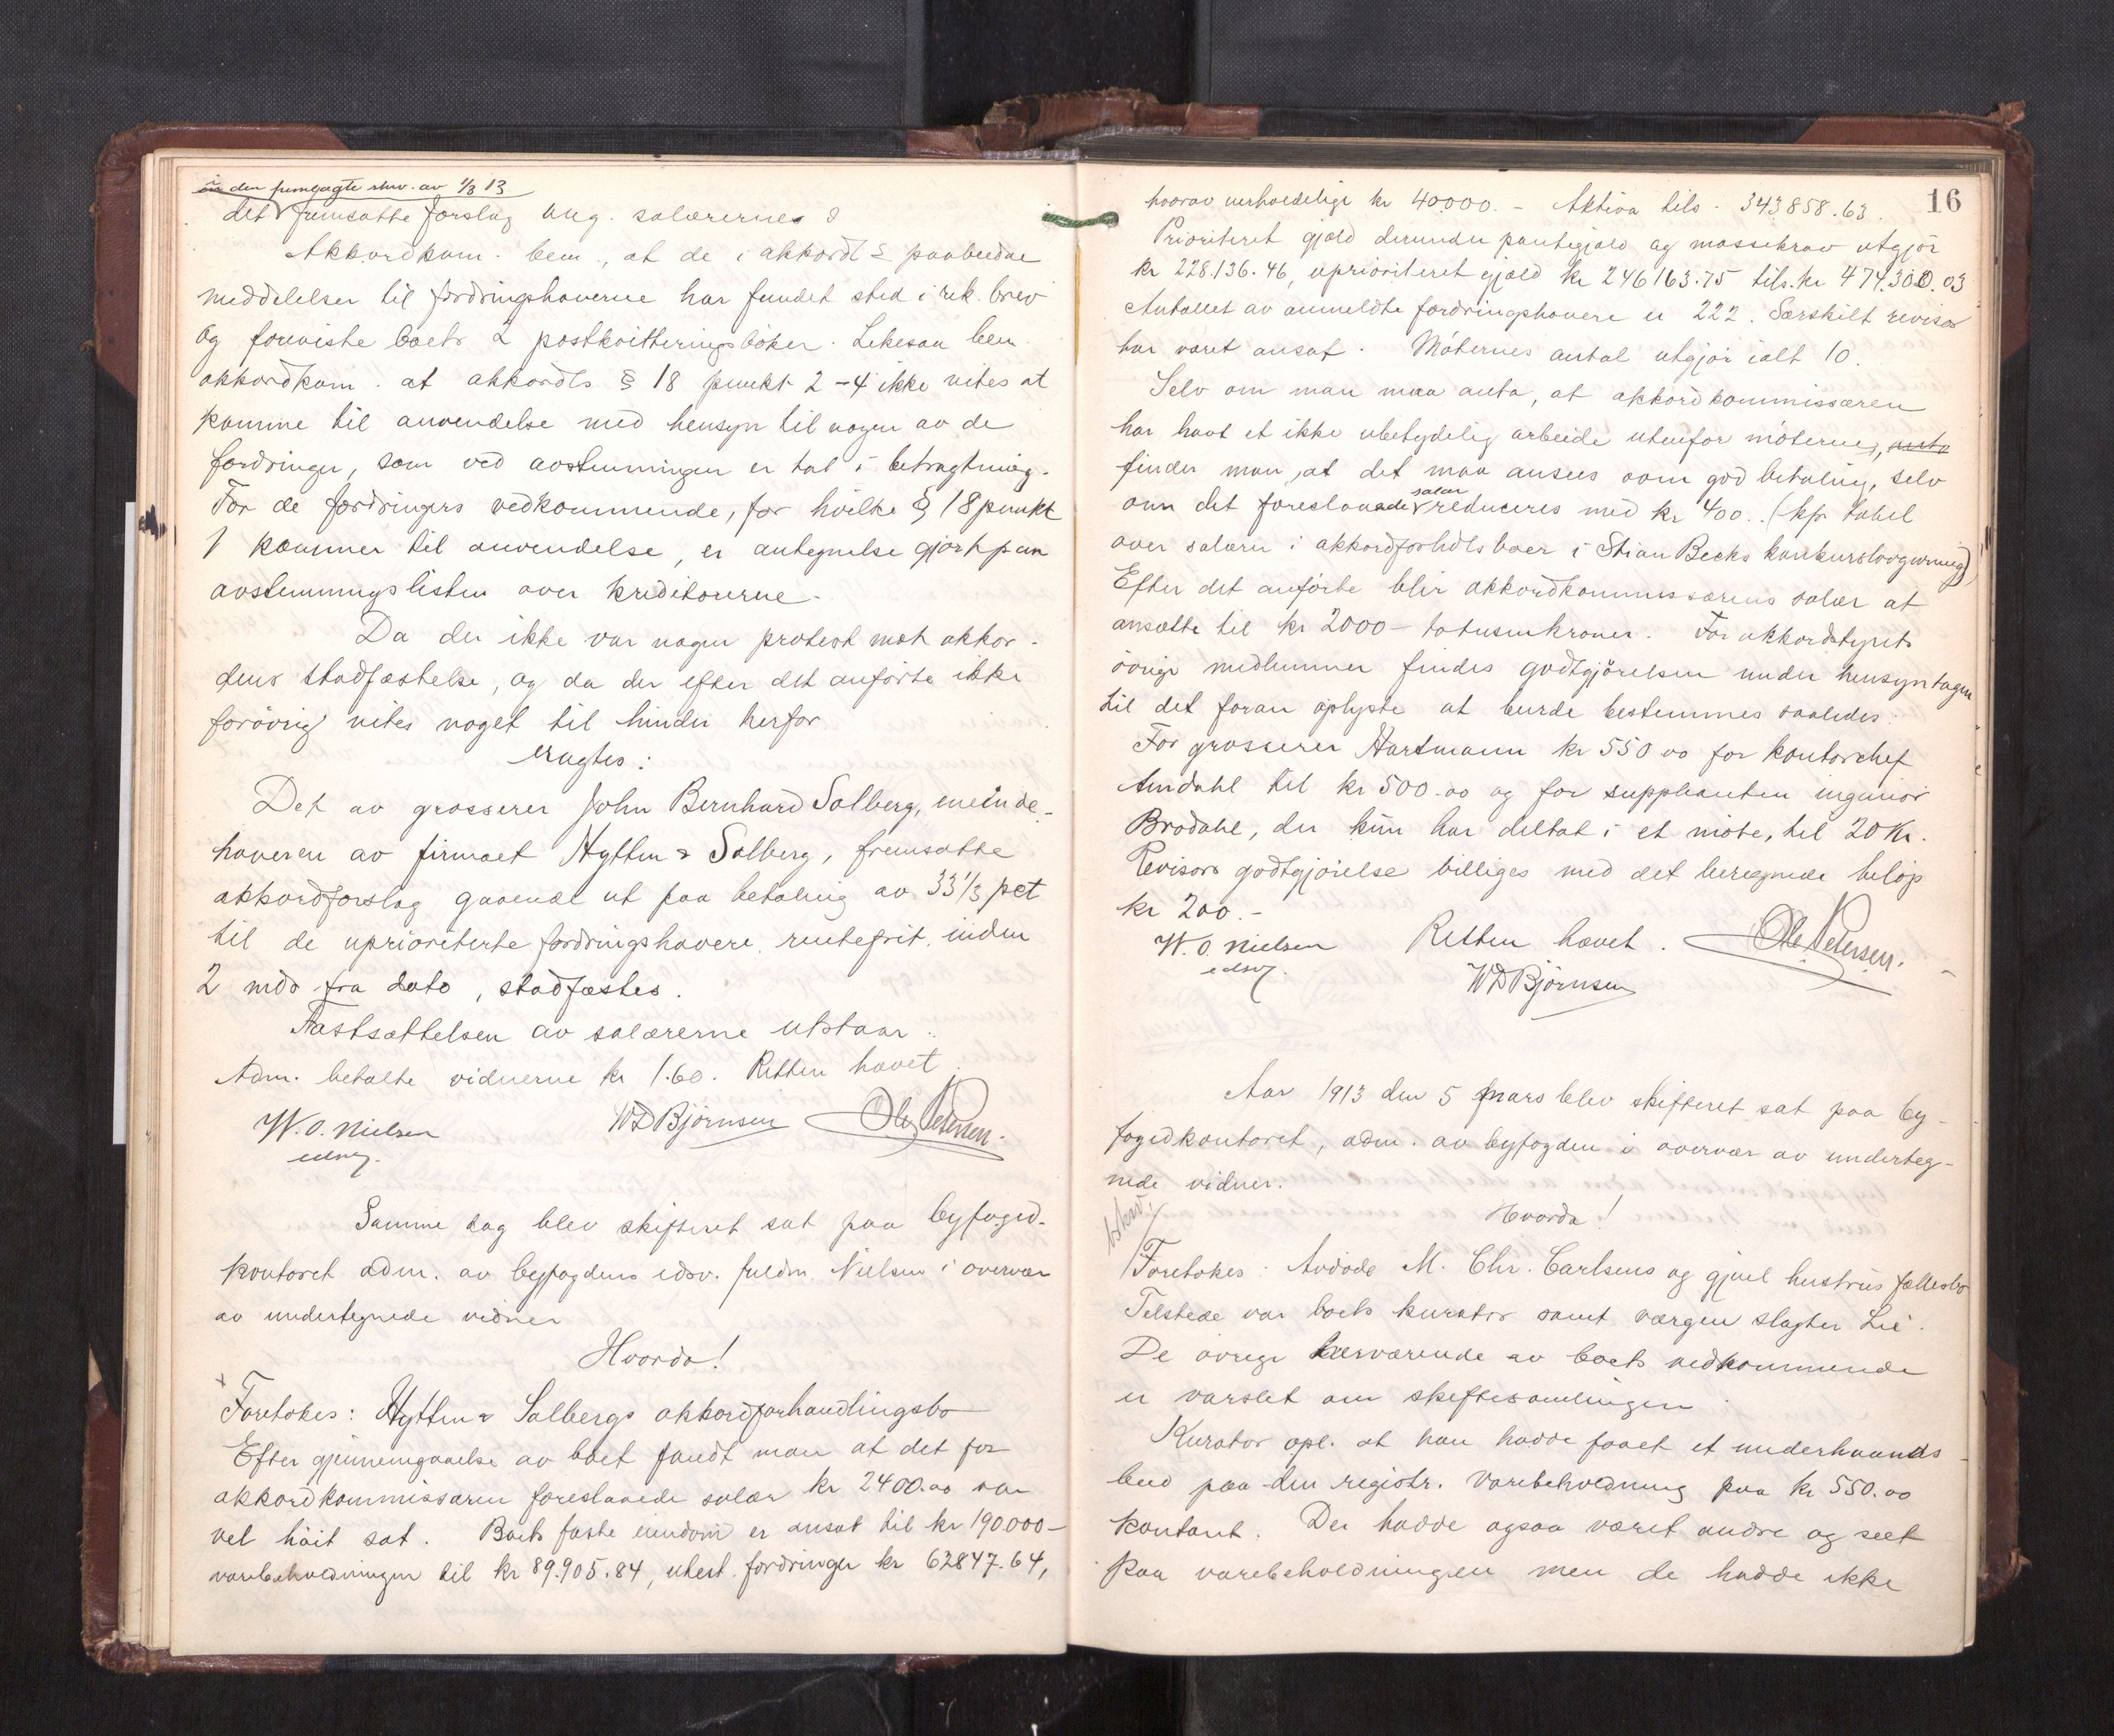 i den fremlagte skriv. av 1/3 13
det fremsatte forslag ang. salærerne
Akkordkom. bem., at de i akkordl § paabudne
meddelelser til fordringshaverne har fundet sted i rek. brev
og foreviste boets 2 postkvitteringsbøker. Likesaa bem.
akkordkom. at akkordls § 18 punkt 2-4 ikke vites at
komme til anvendelse med hensyn til nogen av de
fordringer, som ved avstemningen er tat i betragtning.
For de fordringers vedkommende, for hvilke § 18 punkt
1 kommer til anvendelse, er antegnelse gjort paa
avstemningslisten over kreditorerne.
Da der ikke var nogen protest mot akkor-
dens stadfæstelse, og da der efter det anførte ikke
forøvrig vites noget til hinder herfor
eragtes:
Det av grosserer John Bernhard Solberg, eneinde-
haveren av firmaet Hytten & Solberg, fremsatte
akkordforslag gaaende ut paa betaling av 33 1/3 pct
til de uprioriterte fordringshavere, rentefrit, inden
2 mdr fra dato, stadfæstes.
Fastsættelsen av salærerne utstaar.
Adm. betalte vidnerne kr 1.60. Retten hævet.
W. O. Nielsen WD Bjørnsen Ole Petersen.
edsv.
Samme dag blev skifteret sat paa byfoged-
kontoret adm. av byfogdens edsv. fuldm. Nielsen i overvær
av undertegnede vidner
Hvorda!
Foretokes: Hytten & Solbergs akkordforhandlingsbo
Efter gjennemgaaelse av boet fandt man at det for
akkordkommissæren foreslaaede salær kr 2400.00 var
vel høit sat. Boets faste eiendom er ansat til kr 190.000-
varebeholdningen til kr 89.905.84, utest. fordringer kr 62847.64,
16
hvorav uerholdelige kr 40.000.- Aktiva tils. 343858.63.
Prioriteret gjæld derunder pantegjæld og massekrav utgjør
kr 228.136.46, uprioriteret gjæld kr 246163.75 tils. kr 474.300.03
Antallet av anmeldte fordringshavere er 222. Særskilt revisor
har været ansat. Møternes antal utgjør ialt 10.
Selv om man maa anta, at akkordkommissæren
har havt et ikke ubetydelig arbeide utenfor møterne, anta
finder man, at det maa ansees som god betaling, selv
salær
om det foreslaaede reduceres med kr 400.. (kfr tabel
over salærer i akkordforhdlsboer i Stian Becks konkurslovgivning)
Efter det anførte blir akkordkommissærens salær at
ansætte til kr 2000- totusenkroner. For akkordstyrets
øvrige medlemmer findes godtgjørelsen under hensyntagen
til det foran oplyste at burde bestemmes saaledes:
For grosserer Hartmann kr 550.00 for kontorchef
Amdahl til kr 500.00 og for suppleanten ingeniør
Brodahl, der kun har deltat i et møte, til 20 Kr.
Revisors godtgjørelse billiges med det beregnede beløp
kr 200.-
W. O. Nielsen Retten hævet. Ole Petersen.
edsv. WD Bjørnsen
Aar 1913 den 5 mars blev skifteret sat paa by-
fogedkontoret, adm. av byfogden i overvær av underteg-
nede vidner.
Hvorda!
Foretokes: Avdøde M. Chr. Carlsens og gjenl hustrus fællesbo
Tilstede var boets kurator samt værgen slagter Lie.
De øvrige herværende av boets vedkommende
er varslet om skiftesamlingen.
Kurator opl. at han hadde faaet et underhaands-
bud paa den registr. varebeholdning paa kr 550.00
kontant. Der hadde ogsaa været andre og seet
paa varebeholdningen men de hadde ikke